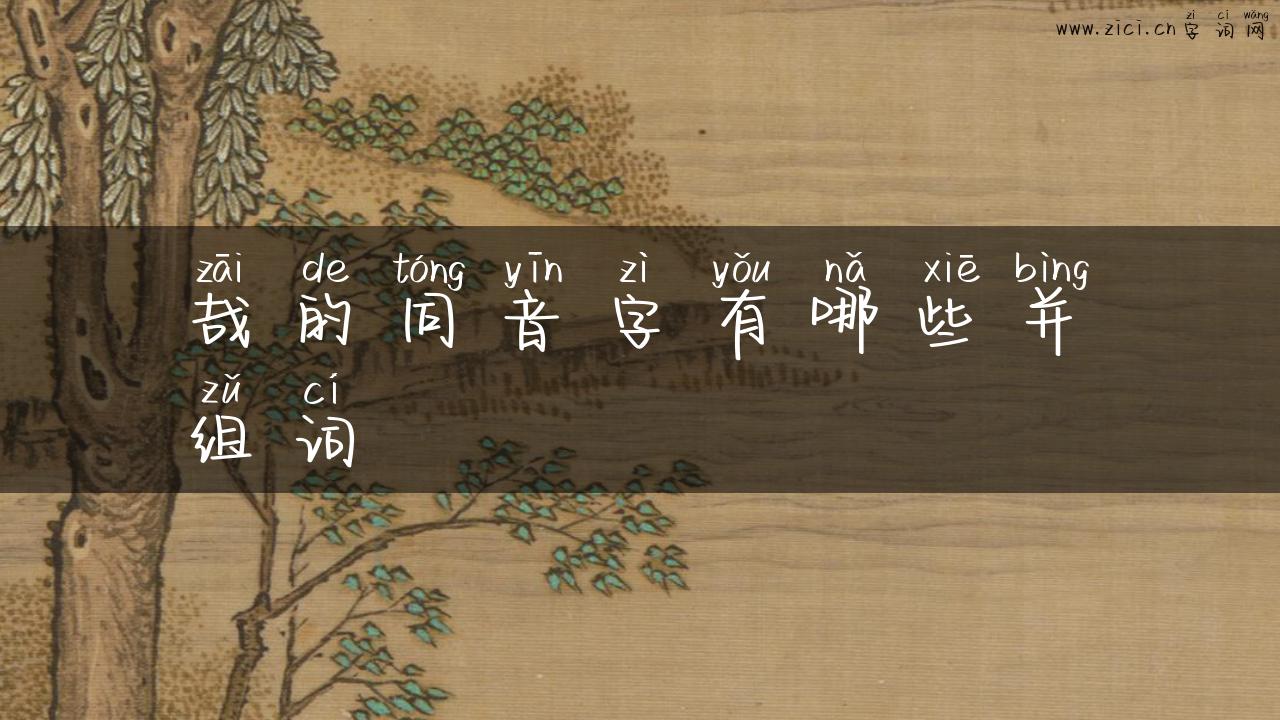 zì cí wǎng
www.zici.cn字词网
zāi de tóng yīn zì yǒu nǎ xiē bìng
哉的同音字有哪些并
zǔ cí
组词